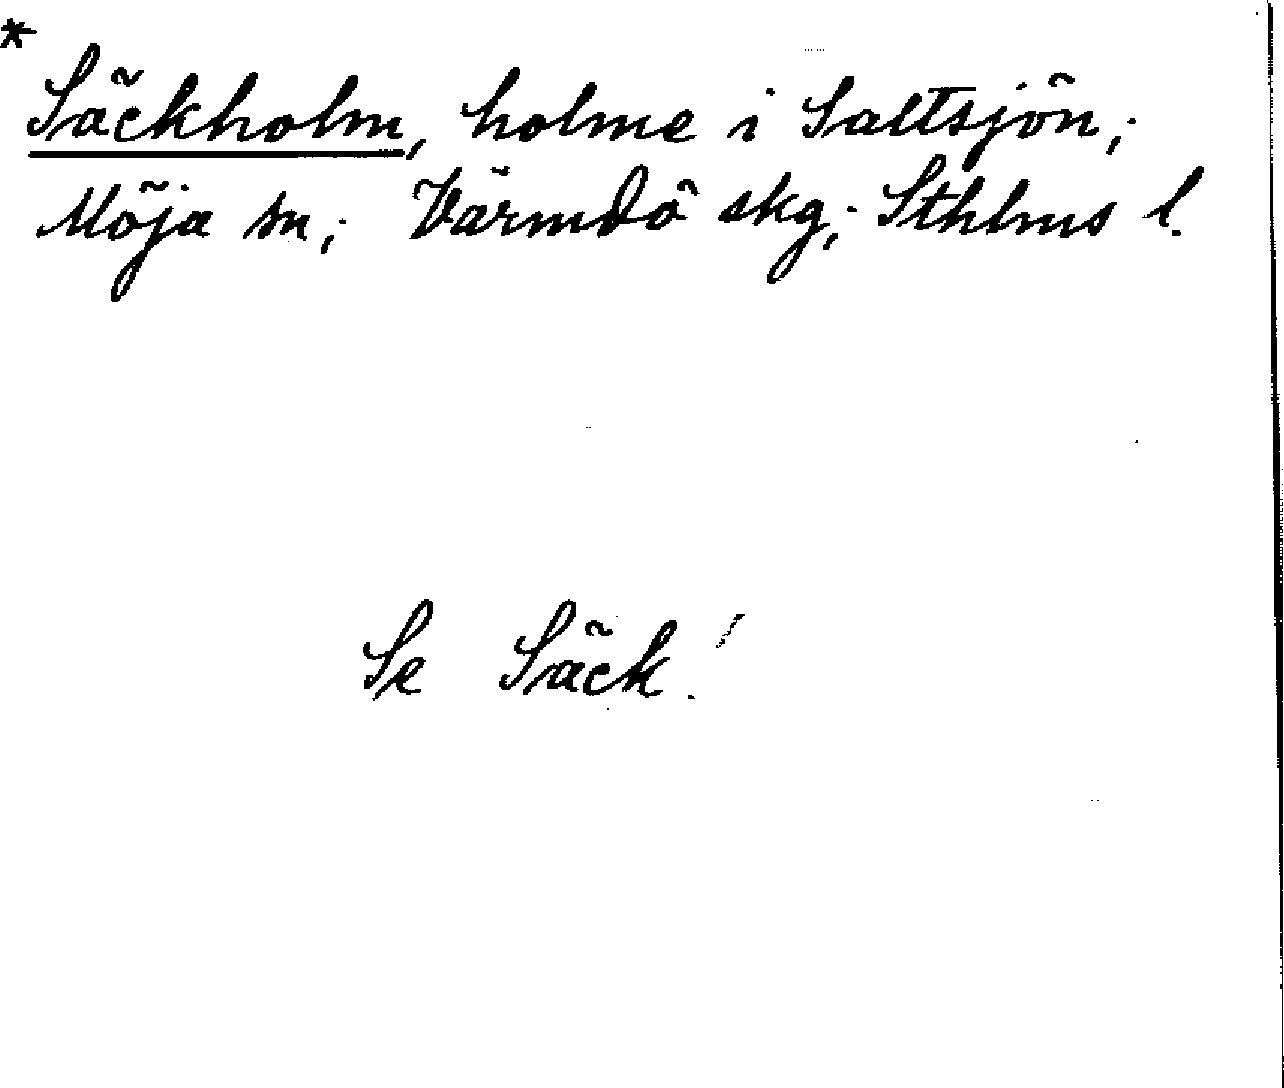 *
Säckholm, holme i Saltsjön;
Möja sn; Värmdö skg; Sthlms l.
Se Säck!